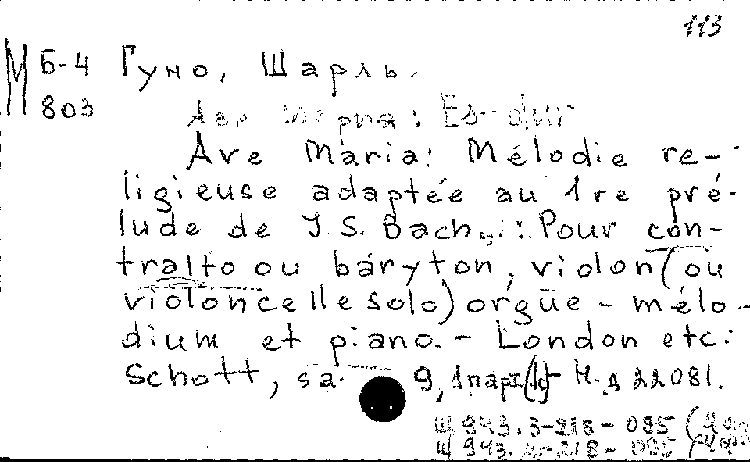 113
М Б-4 Гуно, Шарль.
803
Аве Мария: Es-dur
Ave Maria: Mélodie re-
ligieuse adaptée au 1re pré-
lude de J.S. Bach.: Pour con-
tralto ou baryton, violon (ou
violoncelle solo) orgue-mélo-
dium et piano. - London etc:
Schott, sa. 9, Н.д 22081.
Ш 943.3-218-085
Ш 943.